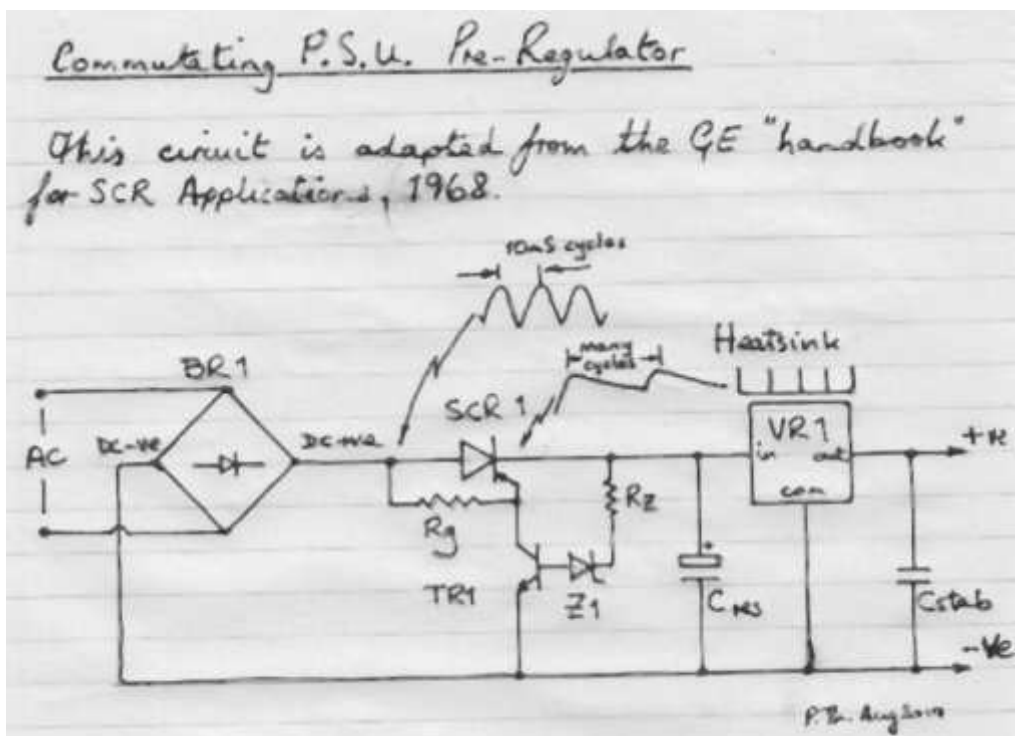 Commutating P.S.U. Pre-Regulator
This circuit is adapted from the GE "handbook"
for SCR Applications, 1968.
10mS cycles
many
cycles
Heatsink
BR1
SCR 1
VR1
AC
DC-ve
DC+ve
in out
com
+ve
Rg
Rz
TR1
Z1
+
Cres
Cstab
-Ve
Aug